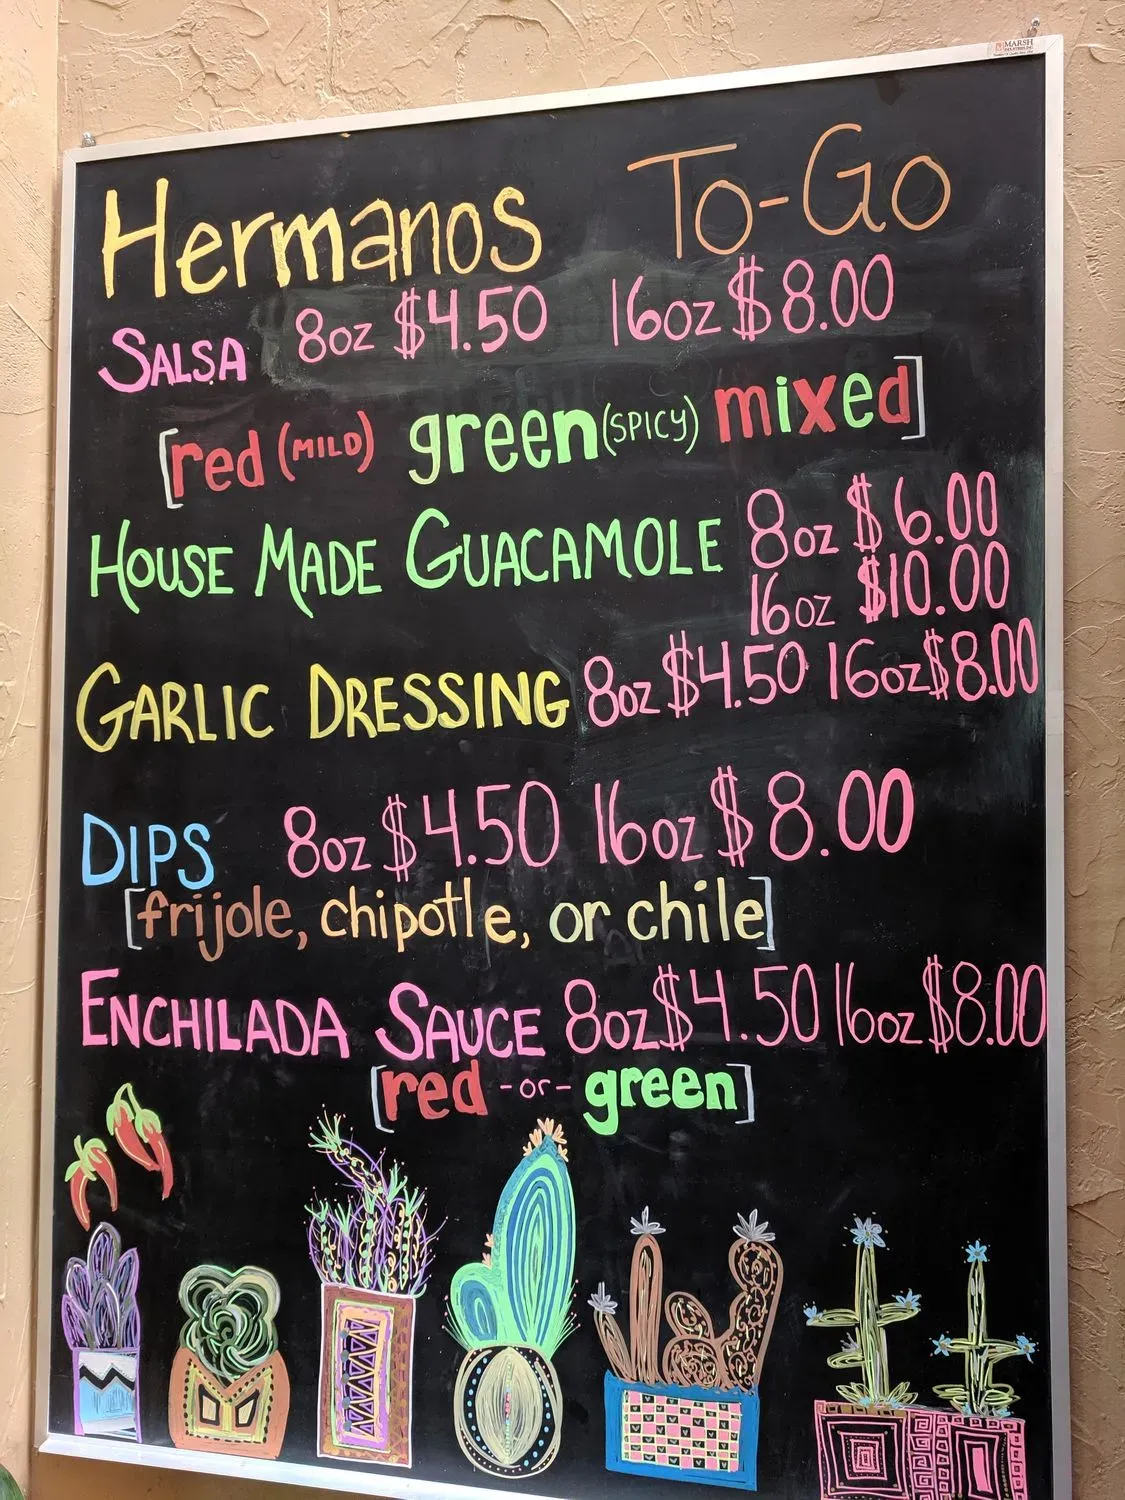 MARSH
Hermanos To-Go
SALSA 8oz $4.50 16oz $8.00
[red (MILD) green (SPICY) mixed]
HOUSE MADE GUACAMOLE 8oz $6.00
16oz $10.00
GARLIC DRESSING 8oz $4.50 16oz $8.00
DIPS 8oz $4.50 16oz $8.00
[frijole, chipotle, or chile]
ENCHILADA SAUCE 8oz $4.50 16oz $8.00
[red -or- green]